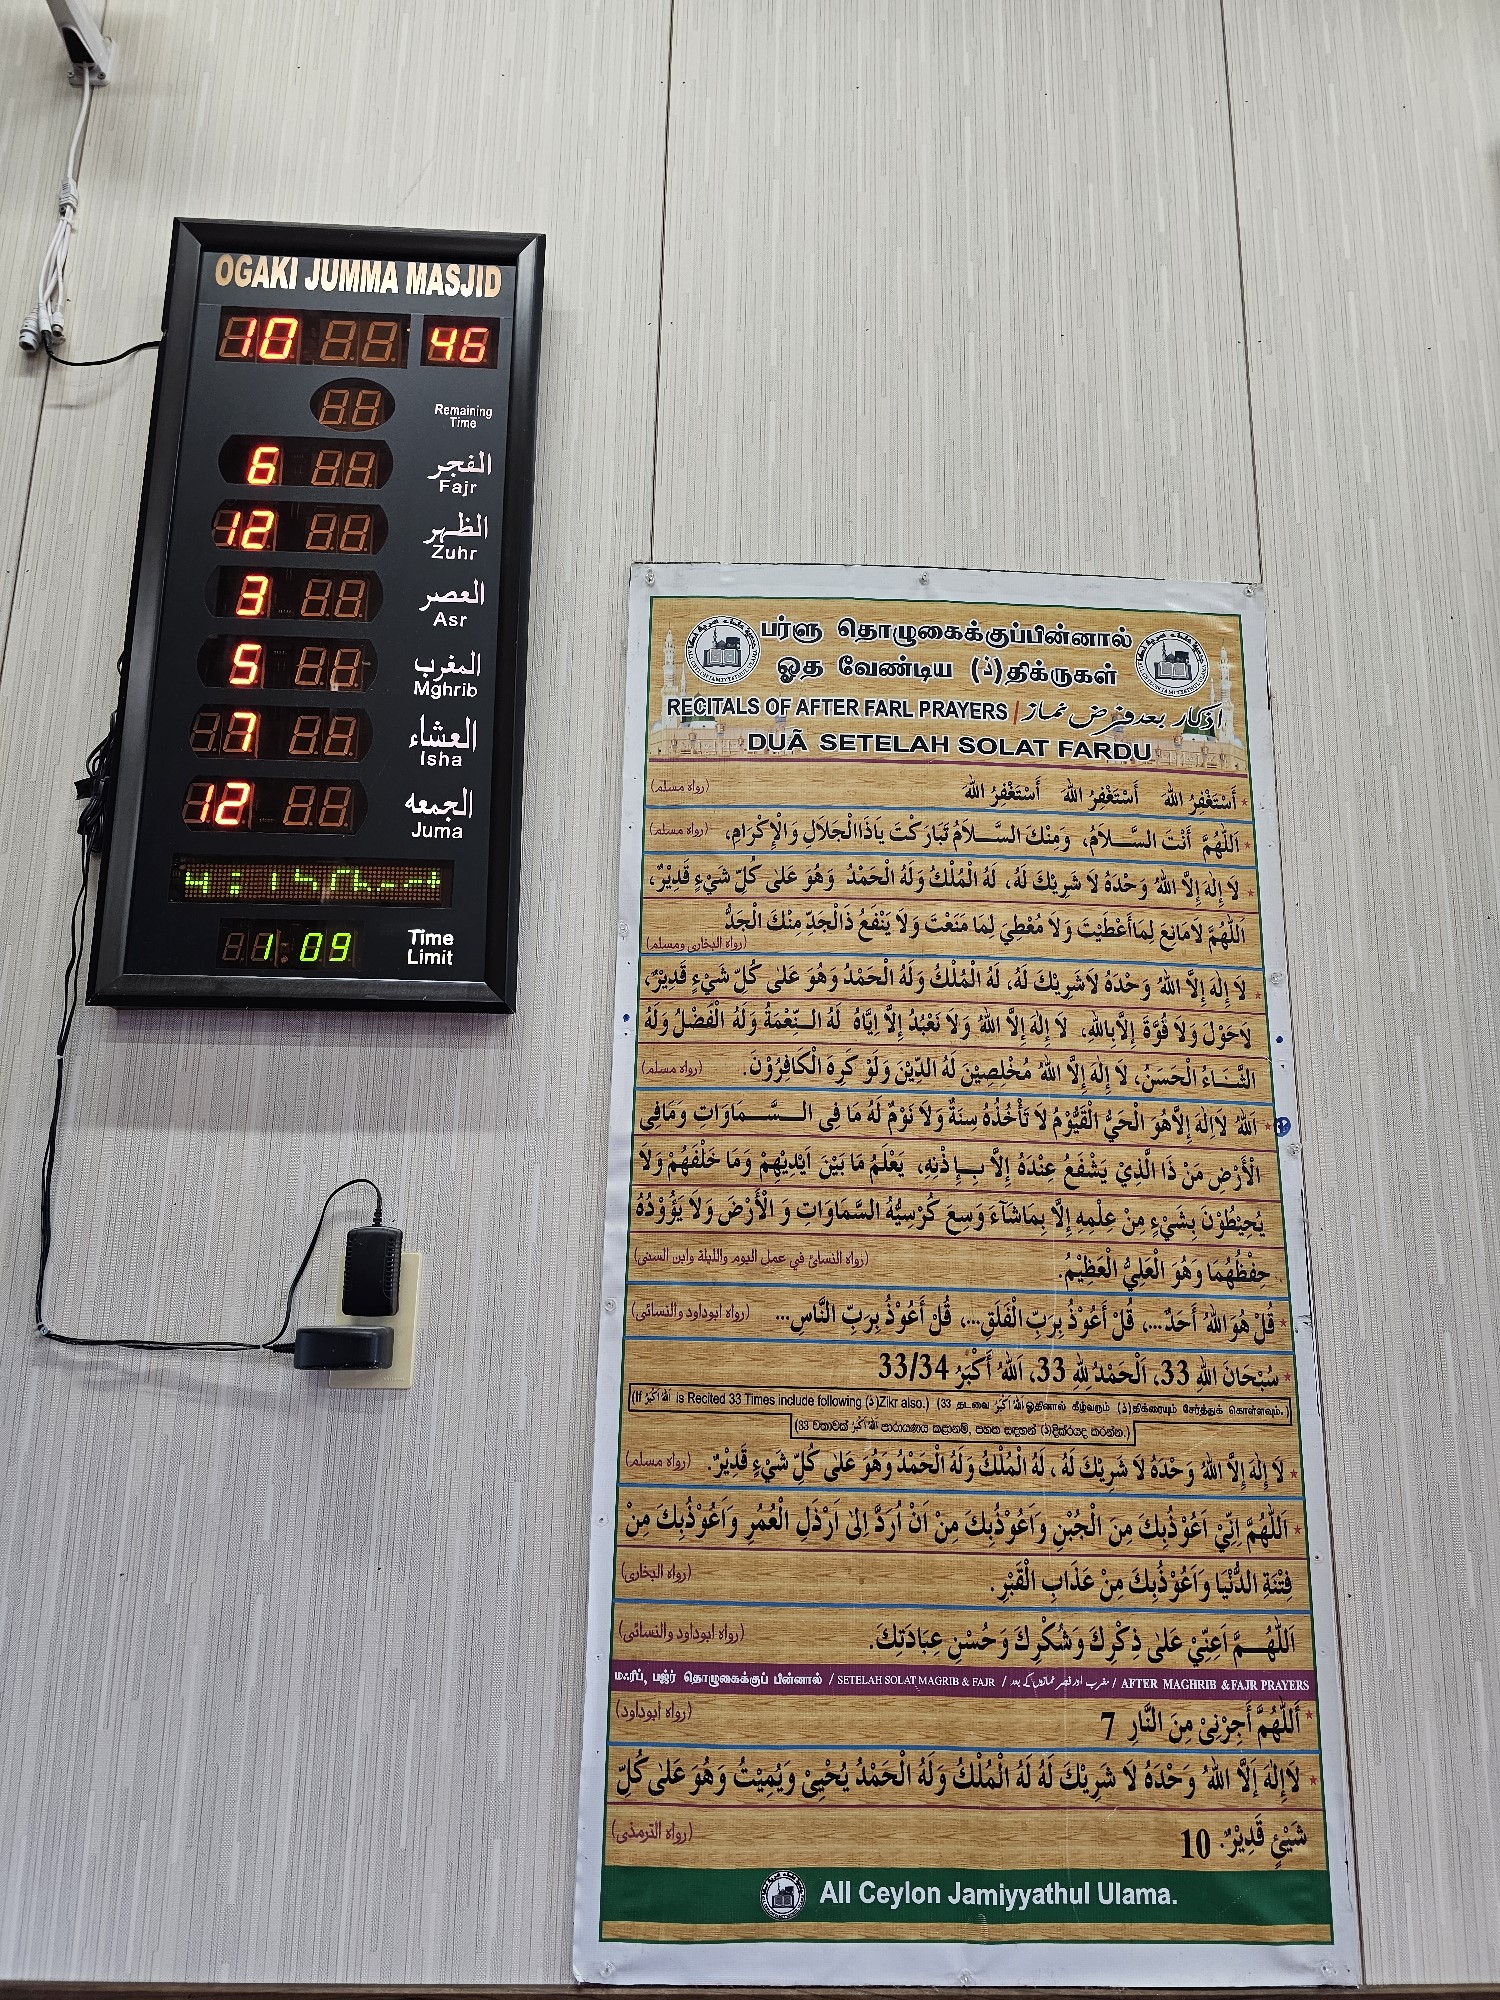 OGAKI JUMMA MASJID
10 46
Remaining
Time
6 الفجر
Fajr
12 الظهر
Zuhr
3 العصر
Asr
5 المغرب
Mghrib
7 العشاء
Isha
12 الجمعه
Juma
1:09 Time
Limit
பர்ளு தொழுகைக்குப்பின்னால்
ஓத வேண்டிய (ذ)திக்ருகள்
RECITALS OF AFTER FARL PRAYERS / اذکار بعد فرض نماز
DUÃ SETELAH SOLAT FARDU
* أَسْتَغْفِرُ اللهَ أَسْتَغْفِرُ اللهَ أَسْتَغْفِرُ اللهَ (رواه مسلم)
* اَللّٰهُمَّ أَنْتَ السَّـــلَامُ، وَمِنْكَ السَّـــلَامُ تَبَارَكْتَ يَاذَاالْجَلَالِ وَالْإِكْرَامِ، (رواه مسلم)
* لَا إِلٰهَ إِلَّا اللهُ وَحْدَهُ لَا شَرِيْكَ لَهُ، لَهُ الْمُلْكُ وَلَهُ الْحَمْدُ وَهُوَ عَلٰى كُلِّ شَيْءٍ قَدِيْرٌ،
اَللّٰهُمَّ لَامَانِعَ لِمَاأَعْطَيْتَ وَلَا مُعْطِيَ لِمَا مَنَعْتَ وَلَا يَنْفَعُ ذَالْجَدِّ مِنْكَ الْجَدُّ (رواه البخارى ومسلم)
* لَا إِلٰهَ إِلَّا اللهُ وَحْدَهُ لَاشَرِيْكَ لَهُ، لَهُ الْمُلْكُ وَلَهُ الْحَمْدُ وَهُوَ عَلٰى كُلِّ شَيْءٍ قَدِيْرٌ،
لَاحَوْلَ وَلَا قُوَّةَ إِلَّابِاللهِ، لَا إِلٰهَ إِلَّا اللهُ وَلَا نَعْبُدُ إِلَّا إِيَّاهُ لَهُ النِّعْمَةُ وَلَهُ الْفَضْلُ وَلَهُ
الثَّنَاءُ الْحَسَنُ، لَا إِلٰهَ إِلَّا اللهُ مُخْلِصِيْنَ لَهُ الدِّيْنَ وَلَوْ كَرِهَ الْكَافِرُوْنَ. (رواه مسلم)
* اَللهُ لَااِلٰهَ إِلَّاهُوَ الْحَيُّ الْقَيُّوْمُ لَا تَأْخُذُهُ سِنَةٌ وَلَا نَوْمٌ لَهُ مَا فِى السَّـــمَاوَاتِ وَمَافِى
الْأَرْضِ مَنْ ذَا الَّذِيْ يَشْفَعُ عِنْدَهُ إِلَّا بِـإِذْنِهِ، يَعْلَمُ مَا بَيْنَ اَيْدِيْهِمْ وَمَا خَلْفَهُمْ وَلَا
يُحِيْطُوْنَ بِشَيْءٍ مِنْ عِلْمِهِ إِلَّا بِمَاشَآءَ وَسِعَ كُرْسِيُّهُ السَّمَاوَاتِ وَ الْأَرْضَ وَلَا يَؤُوْدُهُ
حِفْظُهُمَا وَهُوَ الْعَلِيُّ الْعَظِيْمُ. (رواه النسائ في عمل اليوم والليلة وابن السنى)
* قُلْ هُوَ اللهُ أَحَدٌ...، قُلْ أَعُوْذُ بِرَبِّ الْفَلَقِ...، قُلْ أَعُوْذُ بِرَبِّ النَّاسِ... (رواه ابوداود والنسائى)
* سُبْحَانَ اللهِ 33، اَلْحَمْدُ لِلهِ 33، اَللهُ أَكْبَرُ 33/34
(If اَللهُ أَكْبَرُ is Recited 33 Times include following (ذ)Zikr also.) (33 தடவை اَللهُ أَكْبَرُ ஓதினால் கீழ்வரும் (ذ)திக்ரையும் சேர்த்துக் கொள்ளவும்.)
(33 වතාවක් اَللهُ أَكْبَرُ පාරායණය කළානම්, පහත සඳහන් (ذ)දික්රයද කරන්න.)
* لَا إِلٰهَ إِلَّا اللهُ وَحْدَهُ لَا شَرِيْكَ لَهُ ، لَهُ الْمُلْكُ وَلَهُ الْحَمْدُ وَهُوَ عَلٰى كُلِّ شَيْءٍ قَدِيْرٌ. (رواه مسلم)
* اَللّٰهُمَّ اِنِّيْ اَعُوْذُبِكَ مِنَ الْجُبْنِ وَاَعُوْذُبِكَ مِنْ اَنْ اُرَدَّ اِلٰى اَرْذَلِ الْعُمُرِ وَاَعُوْذُبِكَ مِنْ
فِتْنَةِ الدُّنْيَا وَاَعُوْذُبِكَ مِنْ عَذَابِ الْقَبْرِ. (رواه البخارى)
اَللّٰهُــمَّ اَعِنِّيْ عَلٰى ذِكْرِكَ وَشُكْرِكَ وَحُسْنِ عِبَادَتِكَ. (رواه ابوداود والنسائى)
மஃரிப், பஜ்ர் தொழுகைக்குப் பின்னால் / SETELAH SOLAT MAGRIB & FAJR / مغرب اور فجر نمازوں کے بعد / AFTER MAGHRIB & FAJR PRAYERS
* أَللّٰهُمَّ أَجِرْنِىْ مِنَ النَّارِ 7 (رواه ابوداود)
* لَاإِلٰهَ إِلَّا اللهُ وَحْدَهُ لَا شَرِيْكَ لَهُ لَهُ الْمُلْكُ وَلَهُ الْحَمْدُ يُحْيِىْ وَيُمِيْتُ وَهُوَ عَلٰى كُلِّ
شَيْئٍ قَدِيْرٌ. 10 (رواه الترمذى)
All Ceylon Jamiyyathul Ulama.